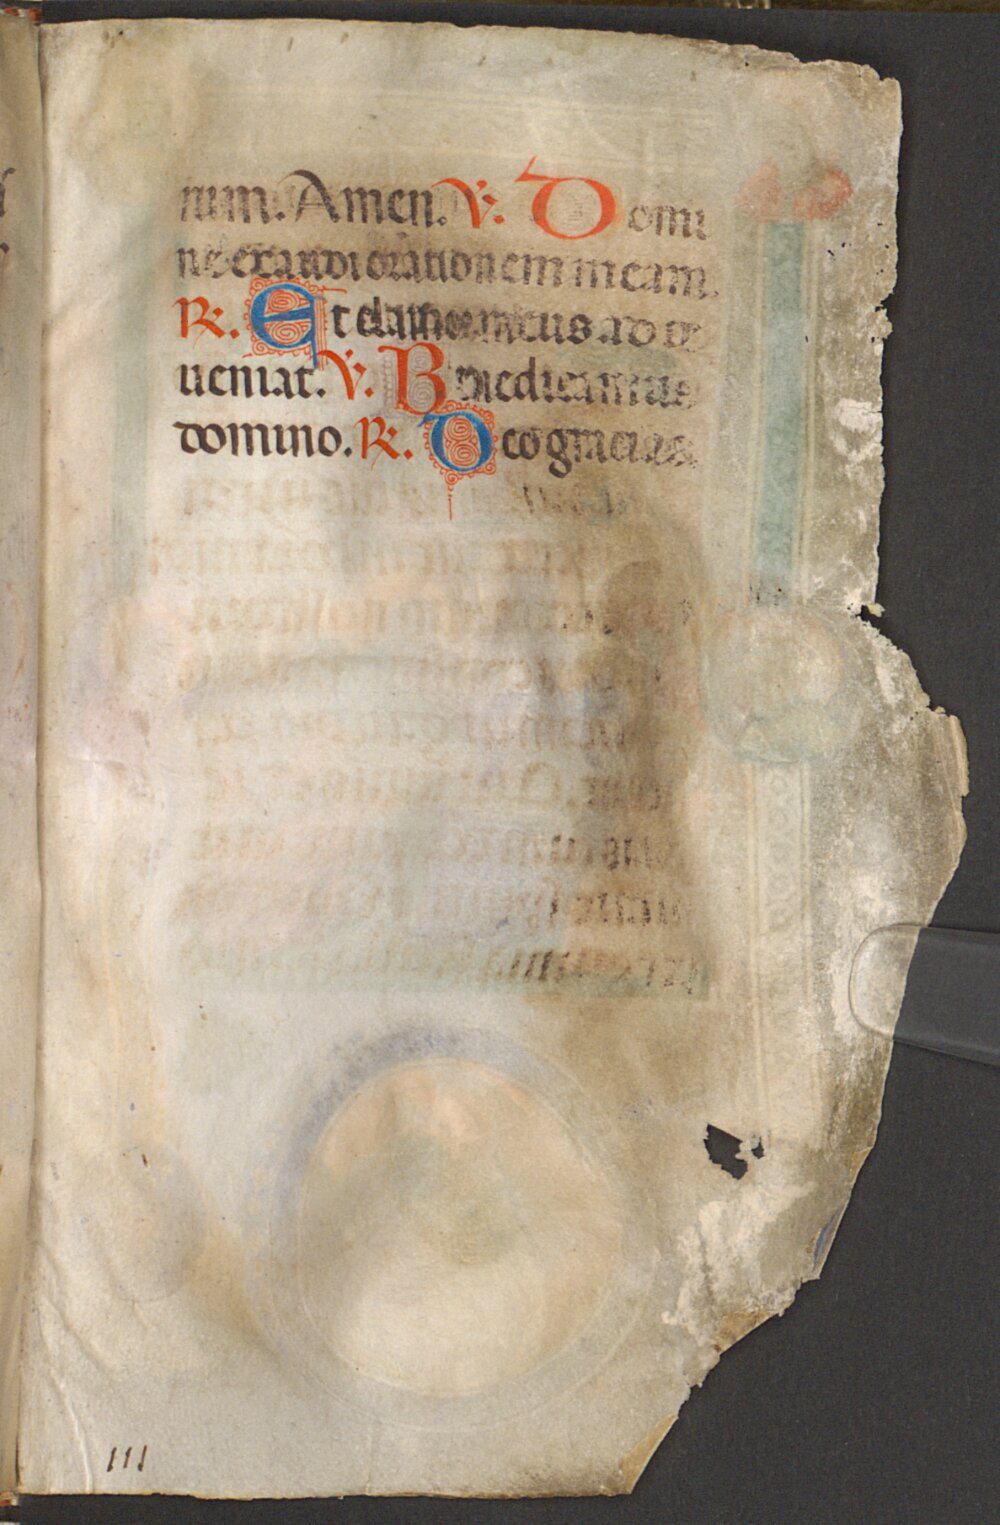 rum. Amen. ℣. Domi
ne exaudi orationem meam.
℟. Et clamor meus ad te
ueniat. ℣. Benedicamus
domino. ℟. Deo gracias.
111